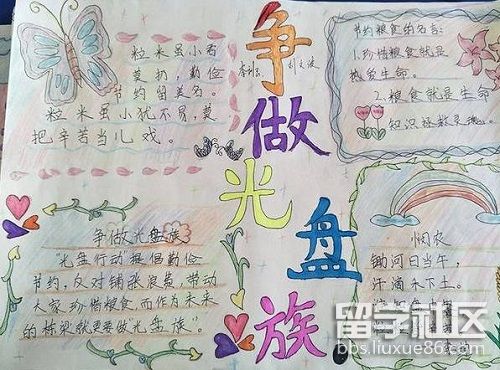 争做光盘族
粒米虽小君
莫扔,勤俭
节约留美名。
粒米虽小犹不易,莫
把辛苦当儿戏。
节约粮食的名言:
1.珍惜粮食就是
热爱生命。
2.粮食就是生命
知识拯救灵魂。
争做光盘族
"光盘行动"提倡勤俭
节约,反对铺张浪费,带动
大家珍惜粮食,而作为未来
的栋梁就更要做光盘族"。
悯农
锄问日当午,
汗滴禾下土。
留学社区
bbs.liuxue86.com